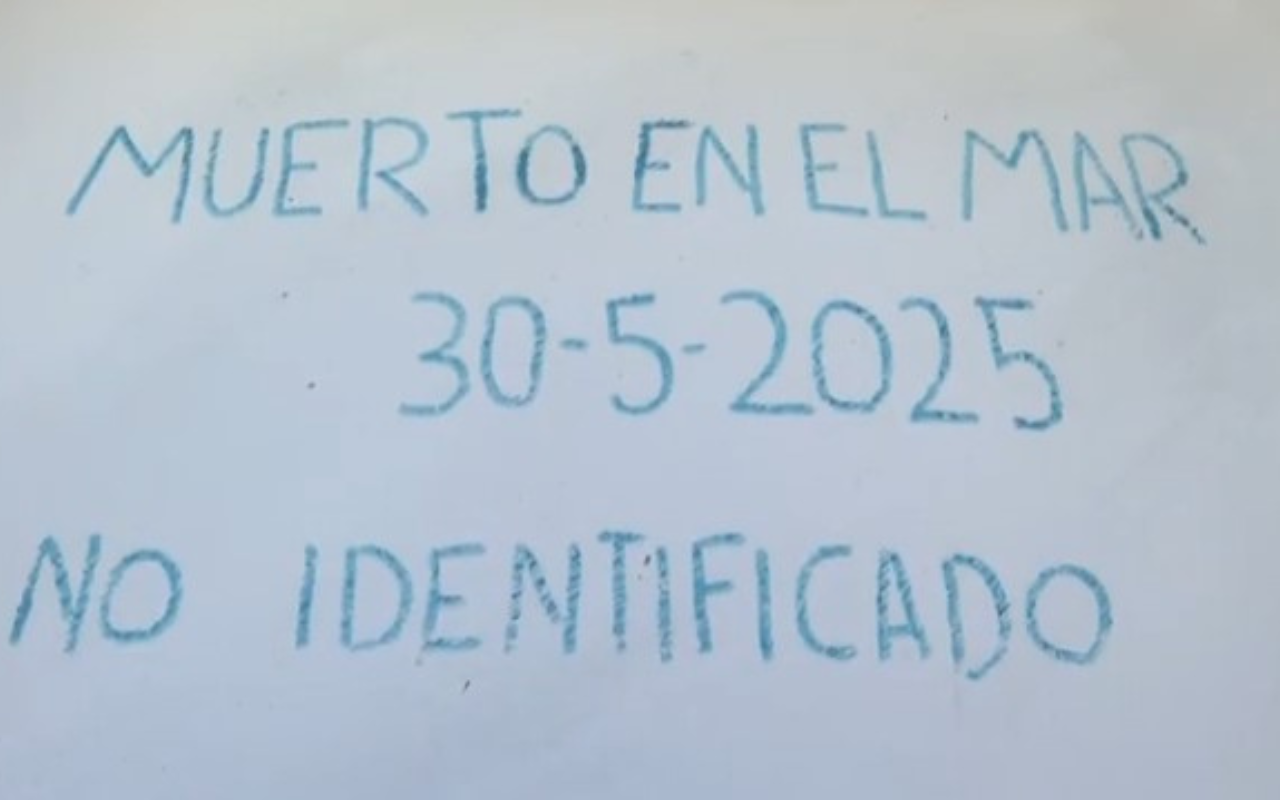 MUERTO EN EL MAR
30-5-2025
NO IDENTIFICADO